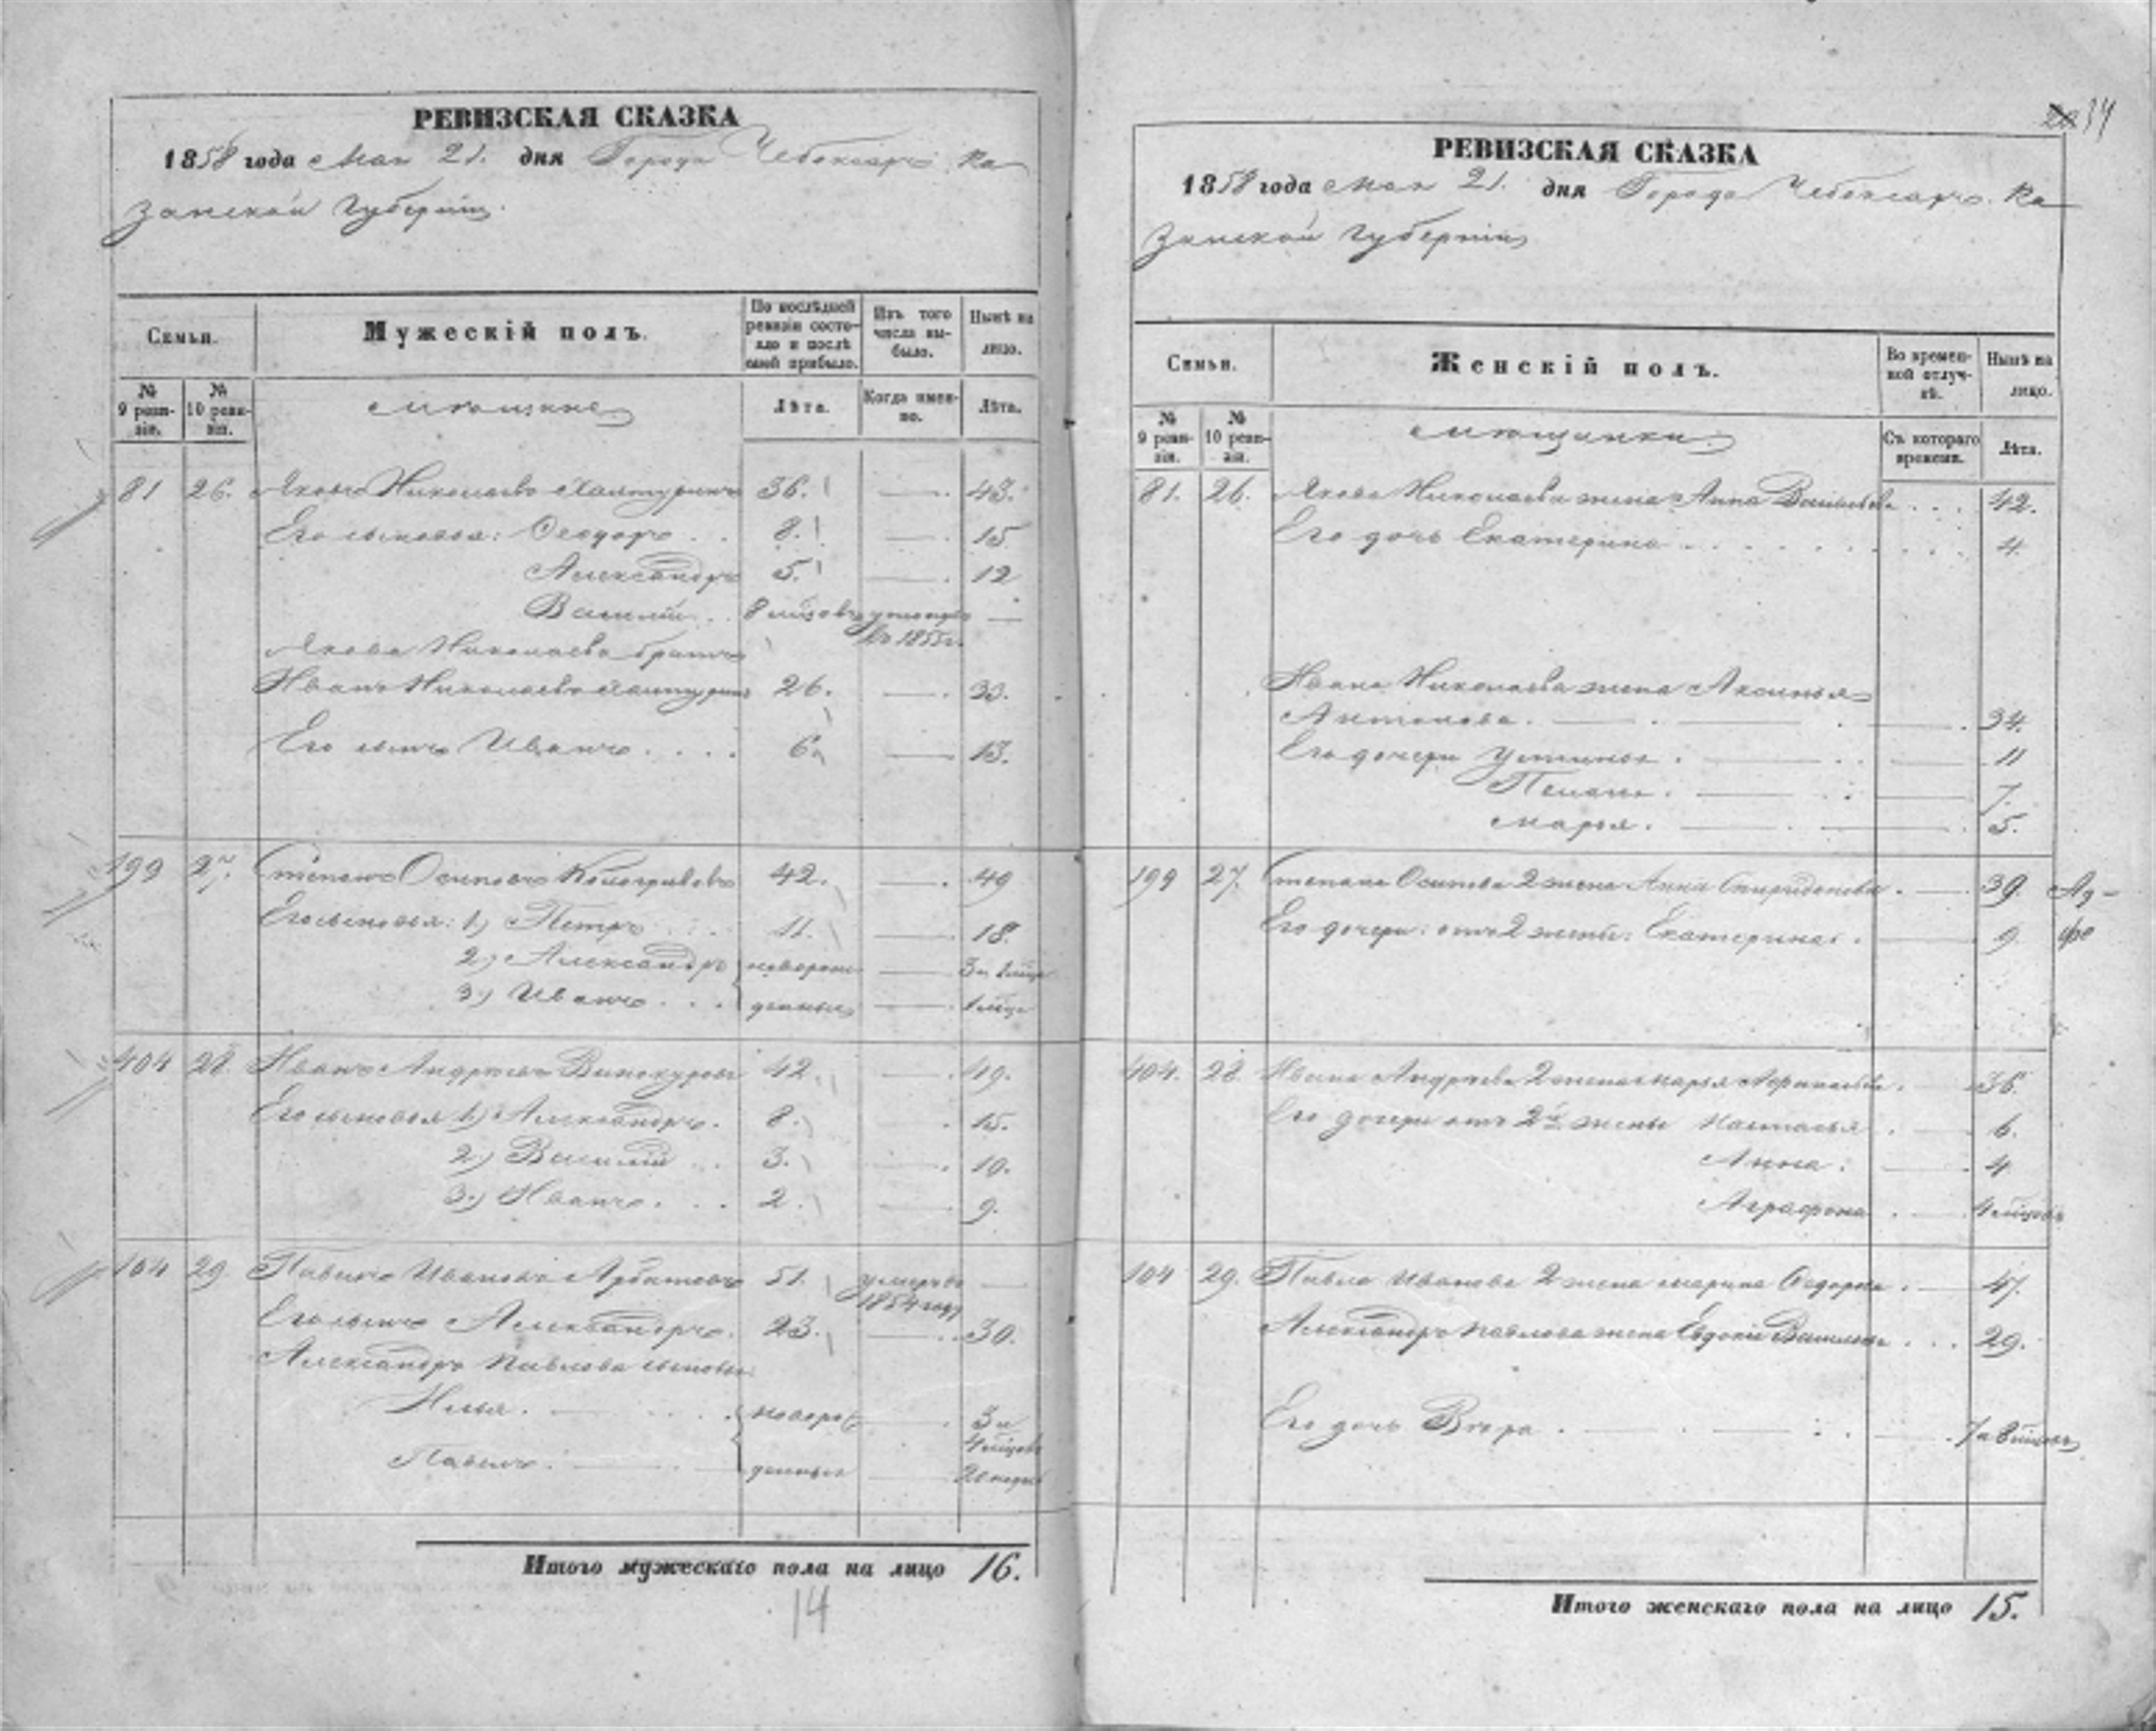 РЕВИЗСКАЯ СКАЗКА
1858 года Мая 21. дня Города Чебоксаръ Ка
занской Губерніи.
Семьи.
Мужескій полъ.
По послѣдней ревизіи состояло и послѣ оной прибыло.
Изъ того числа выбыло.
Нынѣ на лицо.
№ 9 ревизіи.
№ 10 ревизіи.
Мѣщане
Лѣта.
Когда именно.
Лѣта.
81 26. Яковъ Николаевъ 36. — 43.
Его сыновья: Ѳеодоръ . . 8. — 15
Александръ 5. — 12
Василій . . 8 мѣсцовъ —
въ 1855 г.
Якова Николаева братъ
Иванъ Николаевъ 26. — 33.
Его сынъ Иванъ . . . . 6 — 13.
199 27. Степанъ Осиповъ 42. — 49
Его сыновья: 1) Петръ 11. — 18.
2) Александръ новорож — 3 и
3) Иванъ . . . денные — 1 мѣца
404 28. Иванъ Андреевъ Винокуровъ 42. — 49.
Его сыновья 1) Александръ. 8. . 15.
2) Василій . . 3. — 10.
3) Иванъ . . . 2. — 9.
104 29. Павелъ Ивановъ Арбатовъ 51. умеръ въ —
1854 году
Его сынъ Александръ. 23. — 30.
Александра Павлова сыновья
Илья . — новорож — 3 и
4 мѣсцовъ
Павелъ . — денные — 20 недѣль
Итого мужескаго пола на лицо 16.
14
34
РЕВИЗСКАЯ СКАЗКА
1858 года Мая 21. дня Города Чебоксаръ. Ка
занской Губерніи
Семьи.
Женскій полъ.
Во временной отлучкѣ.
Нынѣ на лицо.
№ 9 ревизіи.
№ 10 ревизіи.
Мѣщанки
Съ котораго времени.
Лѣта.
81. 26. Якова Николаева жена Анна Васильева . . . 42.
Его дочь Екатерина . . . . 4.
Ивана Николаева жена Аксинья
Антонова . — 34.
Его дочери Устинья . — 11
Пелагея . — 7.
Марья . — 5.
199 27. Степана Осипова 2 жена Анна Спиридонова . — 39.
Его дочери: отъ 2 жены: Екатерина . — 9
404. 28. Ивана Андреева 2 жена Марья . — 36.
Его дочери отъ 2й жены Настасья . — 6.
Анна . — 4
Аграфена . — 4 мѣсцовъ
104 29. Павла Иванова 2 жена Марина Ѳедорова . — 47.
Александра Павлова жена Евдокія Васильева . . . 29.
Его дочь Вѣра . — 7 и 8 мѣсцовъ
Итого женскаго пола на лицо 15.